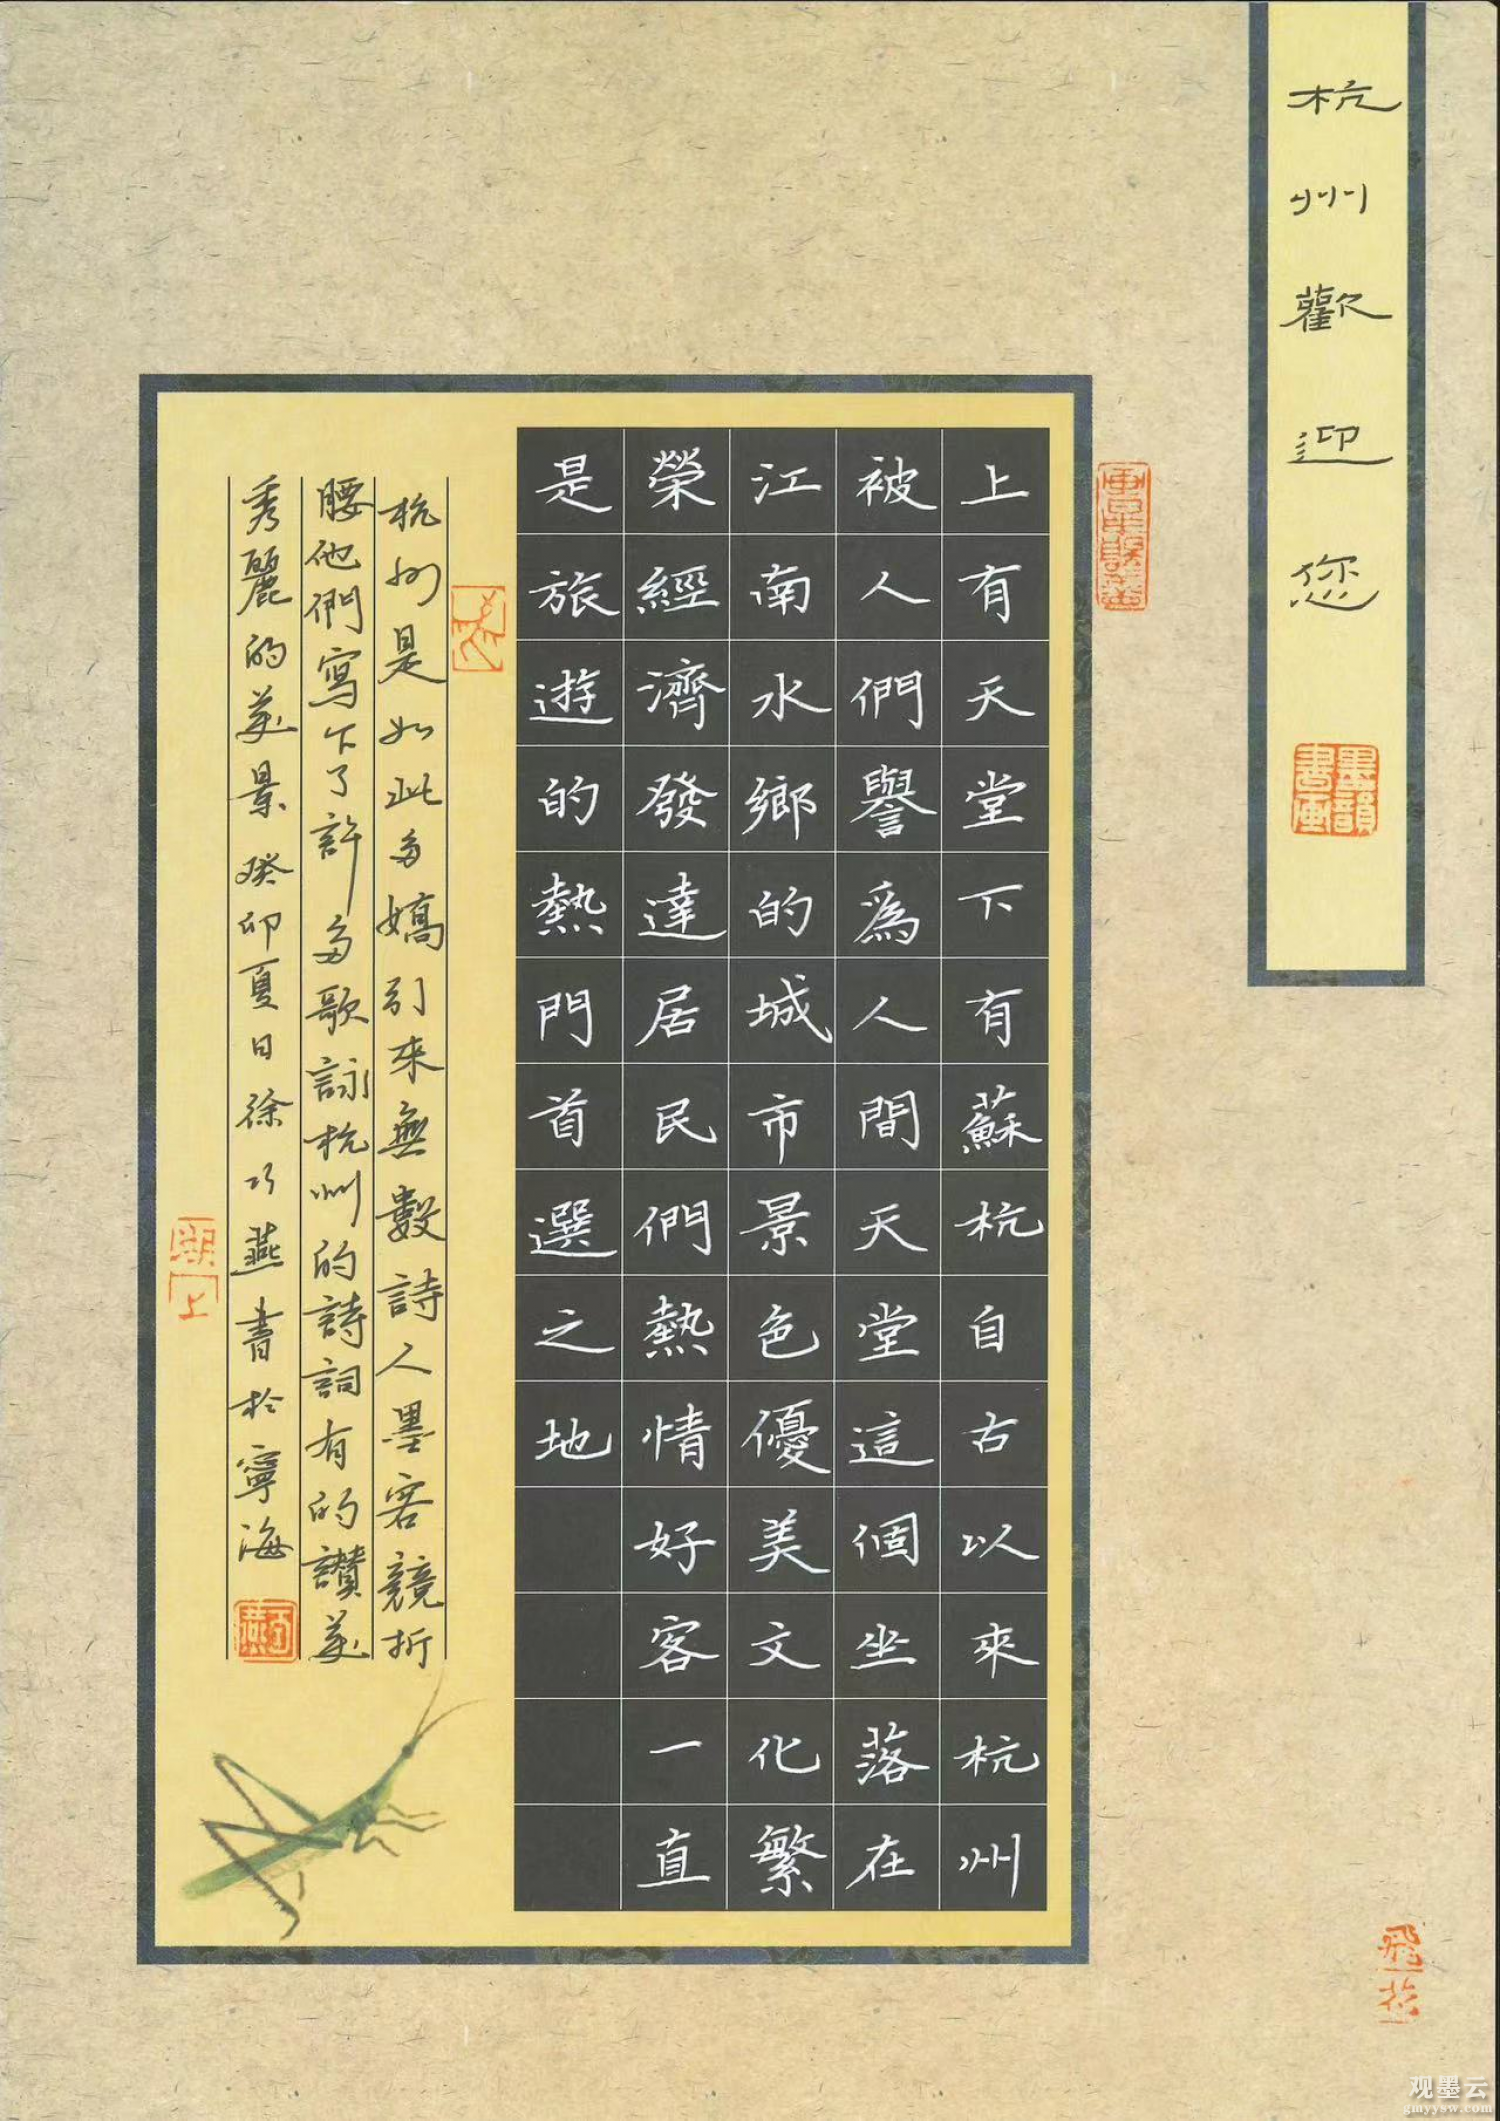 杭州歡迎您
墨韻書畫
上有天堂下有蘇杭自古以來杭州
被人們譽爲人間天堂這個坐落在
江南水鄉的城市景色優美文化繁
榮經濟發達居民們熱情好客一直
是旅遊的熱門首選之地
杭州是如此多嬌引來無數詩人墨客競折
腰他們寫下了許多歌詠杭州的詩詞有的讚美
秀麗的美景癸卯夏日徐巧燕書於寧海
湖上
飛花
观墨云
gmyysw.com